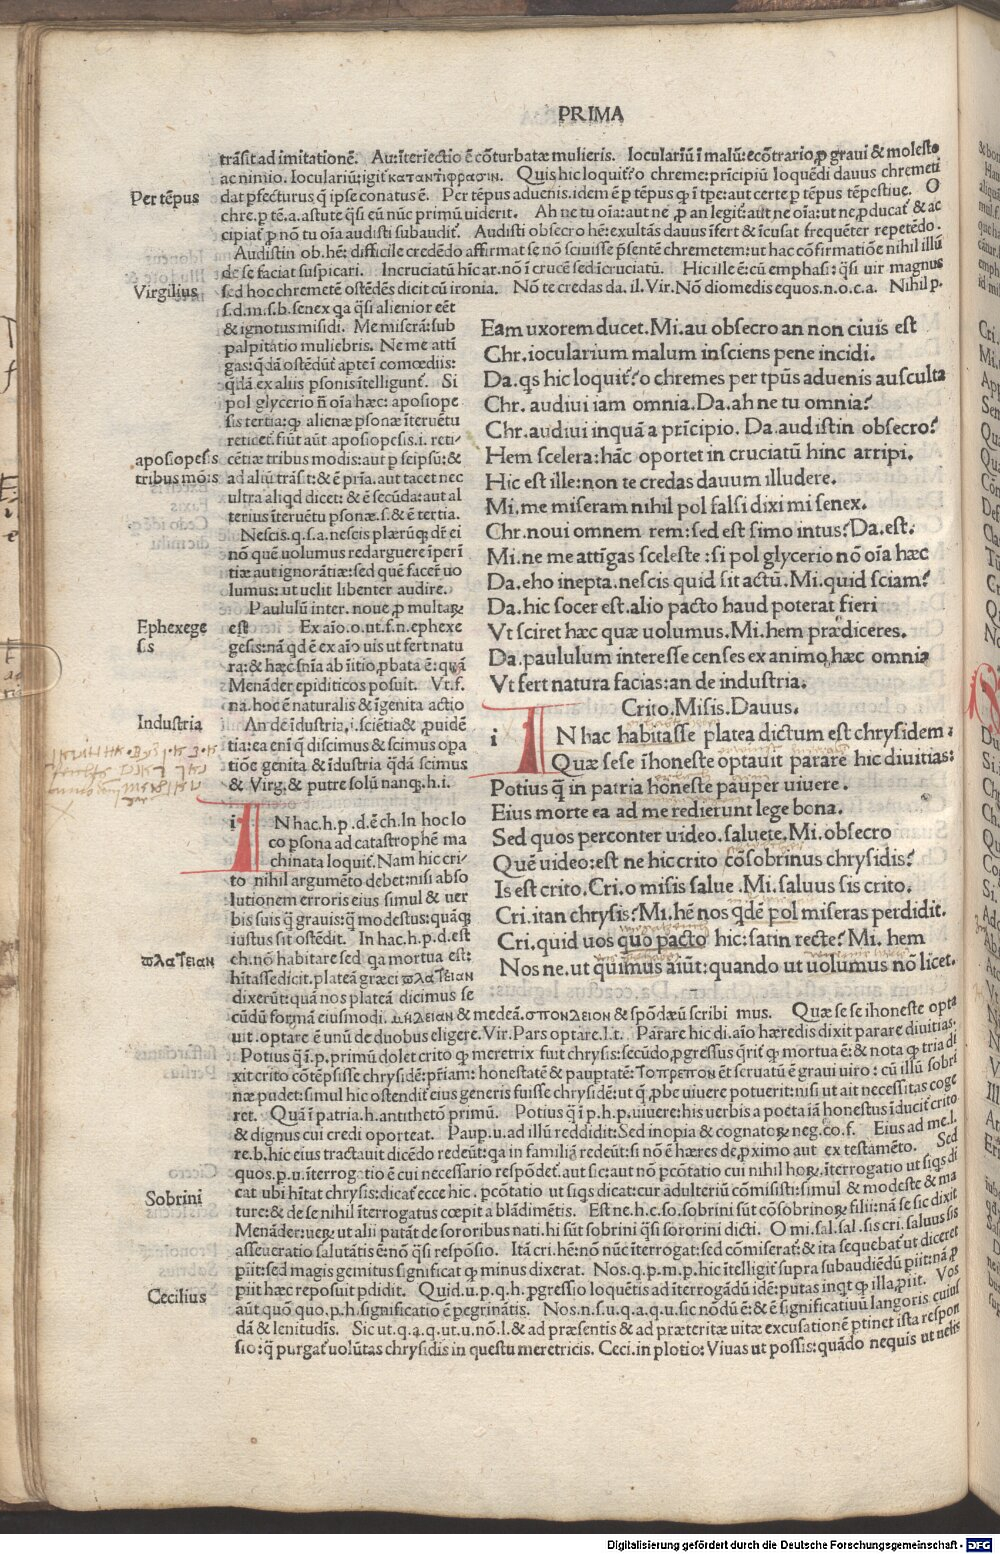 PRIMA
trãsit ad imitationẽ. Au:ĩteriectio ẽ cõturbatæ mulieris. Iocularium ĩ malũ:ecõtrario ꝓ graui & molesto
ac nimio. Iocularium:igit̃ κατάντιφρασιν. Quis hic loquit̃?o chreme:prĩcipiũ loquẽdi dauus chremeti
Per tẽpus
dat pfecturus q̃ ipse conatus ẽ. Per tẽpus aduenis.idem ẽ p tẽpus qꝫ ĩ tpe:aut certe p tẽpus tẽpestiue. O
chre.p tẽ.a.astute q̃si eũ nũc primũ uiderit. Ah ne tu oĩa:aut ne ꝓ an legit̃:aut ne oĩa:ut ne ꝓducat̃ & ac
cipiat̃ ꝓ nõ tu oĩa audisti subaudit̃. Audisti obsecro hẽ:exultãs dauus ĩfert & ĩcusat frequẽter repetẽdo.
Audistin ob.hẽ: difficile credẽdo affirmat se nõ sciuisse p̃sentẽ chremetem:ut hac cõfirmatiõe nihil illũ
de se faciat suspicari. Incruciatũ hĩc ar.nõ ĩ crucẽ sed ĩcruciatũ. Hic ille ẽ:cũ emphasi:q̃si uir magnus
Virgilius
sed hoc chremetẽ ostẽdẽs dicit cũ ironia. Nõ te credas da.il.Vir.Nõ diomedis equos.n.o.c.a. Nihil p.
f.d.m.s.b.senex qa q̃si alienior eẽt
& ignotus misidi. Me miserã:sub
palpitatio muliebris. Ne me attĩ
gas:q̃dã ostẽdũt apte ĩ comœdiis:
q̃dã ex aliis psonis ĩtelligunt̃. Si
pol glycerio ñ oĩa hæc: aposiope
sis tertia:qꝫ alienæ psonæ ĩteruẽtu
reticet̃.fiũt aũt aposiopesis.i.reti-
aposiopesis
cẽtiæ tribus modis:aut p seipsũ:&
tribus mõis
ad aliũ trãsit:& ẽ prĩa.aut tacet nec
ultra aliqd dicet: & ẽ secũda:aut al
terius ĩteruẽtu psonæ.s.& ẽ tertia.
Nescis.q.s.a.nescis plærũqꝫ dr̃ ei
nõ quẽ uolumus redarguere ĩperĩ
tiæ aut ignorãtiæ:sed quẽ facer̃ uo
lumus: ut uelit libenter audire.
Paululũ inter. noue ꝓ multaꝝ
Ephexege
sis
est Ex aĩo.o.ut.f.n.ephexe
gesis:nã qd ẽ ex aĩo uis ut fert natu
ra:& hæc snĩa ab ĩitio ꝓbata ẽ:quã
Menãder epiditicos posuit. Vt.f.
na.hoc ẽ naturalis & ĩgenita actio
Industria
An de ĩdustria.i.sciẽtia& ꝓuidẽ
tia:ea enĩ q̃ discimus & scimus opa
tiõe genita & ĩdustria q̃dã scimus
& Virg.& putre solũ nanqꝫ.h.i.
i
IN hac.h.p.d.ẽ ch.In hoc lo
co psona ad catastrophẽ ma
chinata loquit̃. Nam hic cri-
to nihil argumẽto debet:nisi abso
lutionem erroris eius simul & uer
bis suis q̃ grauis:q̃ modestus:quãqꝫ
iustus sit ostẽdit. In hac.h.p.d.est
πλατειαν
ch.nõ habitare sed qa mortua est:
hĩtasse dicit.plateã græci πλατειαν
dixerũt:quã nos plateã dicimus se
Eam uxorem ducet.Mi.au obsecro an non ciuis est
Chr.iocularium malum insciens pene incidi.
Da.qs hic loquit̃?o chremes per tp̃us aduenis ausculta
Chr. audiui iam omnia.Da.ah ne tu omnia?
Chr.audiui inquã a prĩcipio. Da.audistin obsecro?
Hem scelera:hãc oportet in cruciatũ hinc arripi.
Hic est ille:non te credas dauum illudere.
Mi.me miseram nihil pol falsi dixi mi senex.
Chr.noui omnem rem:sed est simo intus?Da.est.
Mi.ne me attĩgas sceleste:si pol glycerio nõ oĩa hæc
Da.eho inepta.nescis quid sit actũ.Mi.quid sciam?
Da.hic socer est.alio pacto haud poterat fieri
Vt sciret hæc quæ uolumus.Mi.hem prædiceres.
Da.paululum interesse censes ex animo hæc omnia
Vt fert natura facias:an de industria.
Crito.Misis.Dauus.
i
IN hac habitasse platea dictum est chrysidem:
Quæ sese ĩhoneste optauit parare hic diuitias:
Potius q̃ in patria honeste pauper uiuere.
Eius morte ea ad me redierunt lege bona.
Sed quos perconter uideo.saluete.Mi.obsecro
Quẽ uideo:est ne hic crito cõsobrinus chrysidis?
Is est crito.Cri.o misis salue.Mi.saluus sis crito.
Cri.itan chrysis?Mi.hẽ nos qdẽ pol miseras perdidit.
Cri.quid uos quo pacto hic:satin recte?Mi. hem
Nos ne.ut quimus aiũt:quando ut uolumus nõ licet.
cũdũ formã eiusmodi.μηδειαν & medeã.σπονδειον & spõdæũ scribi mus. Quæ se se ihoneste opta
uit.optare ẽ unũ de duobus eligere.Vir.Pars optare.l.t. Parare hic di.aĩo hæredis dixit parare diuitias.
Potius q̃ ĩ.p.primũ dolet crito qꝫ meretrix fuit chrysis:secũdo ꝓgressus q̃rit̃ qꝫ mortua ẽ:& nota qꝫ tria di
xit crito cõtẽpsisse chrysidẽ:pr̃iam: honestatẽ & paupta̋tẽ:τοπρεπον ẽt seruatũ ẽ graui uiro: cũ illũ sobri
næ pudet:simul hic ostendit̃ eius generis fuisse chrysidẽ:ut q̃ ꝓbe uiuere potuerit:nisi ut ait necessitas coge
ret. Quã ĩ patria.h.antithetõ primũ. Potius q̃ ĩ p.h.p.uiuere:his uerbis a poeta iã honestus ĩducit̃ crito
& dignus cui credi oporteat. Paup.u.ad illũ reddidit:Sed inopia & cognatoꝝ neg.co.f. Eius ad me.l.
re.b.hic eius tractauit dicẽdo redeũt:qa in familiã redeũt:si nõ ẽ hæres de ꝓximo aut ex testamẽto. Sed
quos.p.u.ĩterrogatio ẽ cui necessario respõdet̃.aut sic:aut nõ pcõtatio cui nihil hoꝝ.ĩterrogatio ut siqs di
Sobrini
cat ubi hĩtat chrysis:dicat̃ ecce hic. pcõtatio ut siqs dicat:cur adulteriũ cõmisisti:simul & modeste & ma
ture:& de se nihil ĩterrogatus cœpit a blãdimẽtis. Est ne.h.c.so.sobrini sũt cõsobrinoꝝ filii:nã se sic dixit
Menãder:ueꝝ ut alii putãt de sororibus nati.hi sũt sobrini q̃si sororini dicti. O mi.sal.sal.sis cri.saluus sis
asseueratio salutãtis ẽ:nõ q̃si respõsio. Itã cri.hẽ:nõ nũc ĩterrogat:sed cõmiserat̃:& ita sequebat̃ ut diceret
piit:sed magis gemitus significat qꝫ minus dixerat. Nos.q.p.m.p.hic ĩtelligit̃ supra subaudiẽdũ piit:nã ꝓ
Cecilius
piit hæc reposuit pdidit. Quid.u.p.q.h.ꝓgressio loquẽtis ad ĩterrogãdũ idẽ:putas inqt qꝫ illa ꝓiit. Vos
aũt quõ quo.p.h.significatio ẽ pegrinãtis. Nos.n.s.u.q.a.q.u.sic nõdũ ẽ:& ẽ significatiuũ langoris cuius
dã & lenitudĩs. Sic ut.q.a.q.ut.u.nõ.l.& ad præsentis & ad præteritæ uitæ excusationẽ ptinet ista respon
sio:q̃ purgat̃ uolũtas chrysidis in questu meretricis. Ceci.in plotio: Viuas ut possis:quãdo nequis ut uelis
Digitalisierung gefördert durch die Deutsche Forschungsgemeinschaft - DFG